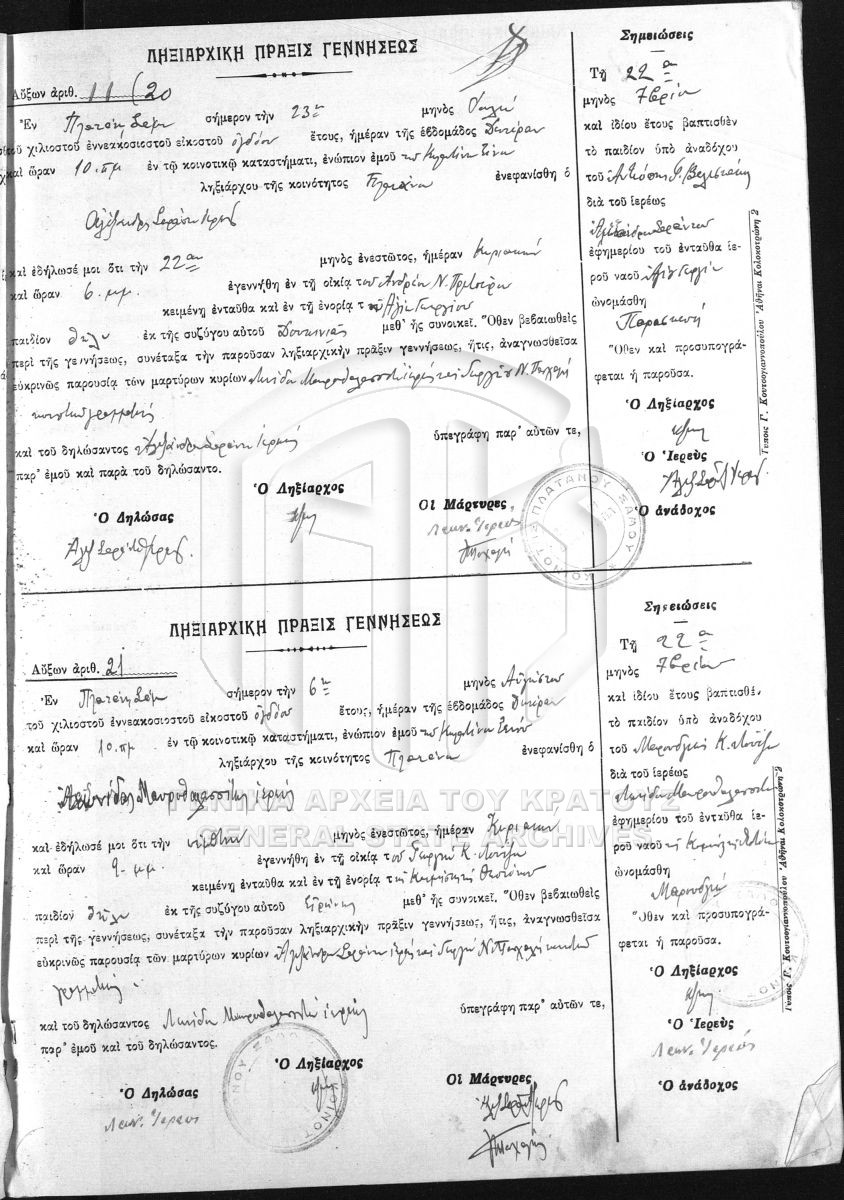 ΛΗΞΙΑΡΧΙΚΗ ΠΡΑΞΙΣ ΓΕΝΝΗΣΕΩΣ
Αὔξων ἀριθ. 11/20
Ἐν Πλατάνῳ Σάμου σήμερον τὴν 23ην μηνὸς Ἰουλίου
τοῦ χιλιοστοῦ ἐννεακοσιοστοῦ εἰκοστοῦ ὀγδόου ἔτους, ἡμέραν τῆς ἑβδομάδος Δευτέραν
καὶ ὥραν 10. πμ ἐν τῷ κοινοτικῷ καταστήματι, ἐνώπιον ἐμοῦ τοῦ
ληξιάρχου τῆς κοινότητος Πλατάνου ἐνεφανίσθη ὁ
Ἀλέξανδρος Σαράντου ἱερεύς
καὶ ἐδήλωσέ μοι ὅτι τὴν 22αν μηνὸς ἐνεστῶτος, ἡμέραν Κυριακὴν
καὶ ὥραν 6. μμ. ἐγεννήθη ἐν τῇ οἰκίᾳ του Ἀνδρέα Ν.
κειμένῃ ἐνταῦθα καὶ ἐν τῇ ἐνορίᾳ τοῦ Ἁγίου Γεωργίου
παιδίον θῆλυ ἐκ τῆς συζύγου αὐτοῦ μεθ' ἧς συνοικεῖ. Ὅθεν βεβαιωθεὶς
περὶ τῆς γεννήσεως, συνέταξα τὴν παροῦσαν ληξιαρχικὴν πρᾶξιν γεννήσεως, ἥτις, ἀναγνωσθεῖσα
εὐκρινῶς παρουσίᾳ τῶν μαρτύρων κυρίων Μαυροθαλασσίτη ἱερέως καὶ Γεωργίου Ν. Πασχάλη
κοινοτικοῦ γραμματέως
καὶ τοῦ δηλώσαντος Ἀλεξάνδρου Σαράντου ἱερέως ὑπεγράφη παρ' αὐτῶν τε,
παρ' ἐμοῦ καὶ παρὰ τοῦ δηλώσαντο.
Ὁ Ληξίαρχος
Ὁ Δηλώσας
Οἱ Μάρτυρες
Σημειώσεις
Τῇ 22ᾳ
μηνὸς 7βρίου
καὶ ἰδίου ἔτους βαπτισθὲν
τὸ παιδίον ὑπὸ ἀναδόχου
τοῦ
διὰ τοῦ ἱερέως
Ἀλεξάνδρου Σαράντου
ἐφημερίου τοῦ ἐνταῦθα ἱε-
ροῦ ναοῦ Ἁγίου Γεωργίου
ὠνομάσθη
Παρασκευή
Ὅθεν καὶ προσυπογρά-
φεται ἡ παροῦσα.
Ὁ Ληξίαρχος
Ὁ Ἱερεὺς
Ὁ ἀνάδοχος
Τύποις Γ. Κουτσογιαννοπούλου Ἀθῆναι Κολοκοτρώνη 2
ΚΟΙΝΟΤΗΣ ΠΛΑΤΑΝΟΥ ΣΑΜΟΥ
ΛΗΞΙΑΡΧΙΚΗ ΠΡΑΞΙΣ ΓΕΝΝΗΣΕΩΣ
Αὔξων ἀριθ. 21
Ἐν Πλατάνῳ Σάμου σήμερον τὴν 6ην μηνὸς Αὐγούστου
τοῦ χιλιοστοῦ ἐννεακοσιοστοῦ εἰκοστοῦ ὀγδόου ἔτους, ἡμέραν τῆς ἑβδομάδος Δευτέραν
καὶ ὥραν 10. πμ ἐν τῷ κοινοτικῷ καταστήματι, ἐνώπιον ἐμοῦ τοῦ
ληξιάρχου τῆς κοινότητος Πλατάνου ἐνεφανίσθη ὁ
Λεωνίδας Μαυροθαλασσίτης ἱερεύς
καὶ ἐδήλωσέ μοι ὅτι τὴν πέμπτην μηνὸς ἐνεστῶτος, ἡμέραν Κυριακὴν
καὶ ὥραν 9. μμ. ἐγεννήθη ἐν τῇ οἰκίᾳ τοῦ Γεωργίου Κ.
κειμένῃ ἐνταῦθα καὶ ἐν τῇ ἐνορίᾳ τῆς Κοιμήσεως Θεοτόκου
παιδίον θῆλυ ἐκ τῆς συζύγου αὐτοῦ Εἰρήνης μεθ' ἧς συνοικεῖ. Ὅθεν βεβαιωθεὶς
περὶ τῆς γεννήσεως, συνέταξα τὴν παροῦσαν ληξιαρχικὴν πρᾶξιν γεννήσεως, ἥτις, ἀναγνωσθεῖσα
εὐκρινῶς παρουσίᾳ τῶν μαρτύρων κυρίων Ἀλεξάνδρου Σαράντου ἱερέως καὶ Γεωργίου Ν. Πασχάλη κοινοτικοῦ
γραμματέως.
καὶ τοῦ δηλώσαντος Λεωνίδα Μαυροθαλασσίτη ἱερέως ὑπεγράφη παρ' αὐτῶν τε,
παρ' ἐμοῦ καὶ τοῦ δηλώσαντος.
Ὁ Ληξίαρχος
Ὁ Δηλώσας
Οἱ Μάρτυρες
Σημειώσεις
Τῇ 22ᾳ
μηνὸς 7βρίου
καὶ ἰδίου ἔτους βαπτισθὲν
τὸ παιδίον ὑπὸ ἀναδόχου
τοῦ
διὰ τοῦ ἱερέως
Λεωνίδα Μαυροθαλασσίτη
ἐφημερίου τοῦ ἐνταῦθα ἱε-
ροῦ ναοῦ τῆς Κοιμήσεως
ὠνομάσθη
Μαρουδιώ
Ὅθεν καὶ προσυπογρά-
φεται ἡ παροῦσα.
Ὁ Ληξίαρχος
Ὁ Ἱερεὺς
Ὁ ἀνάδοχος
Τύποις Γ. Κουτσογιαννοπούλου Ἀθῆναι Κολοκοτρώνη 2
ΓΕΝΙΚΑ ΑΡΧΕΙΑ ΤΟΥ ΚΡΑΤΟΥΣ
GENERAL STATE ARCHIVES